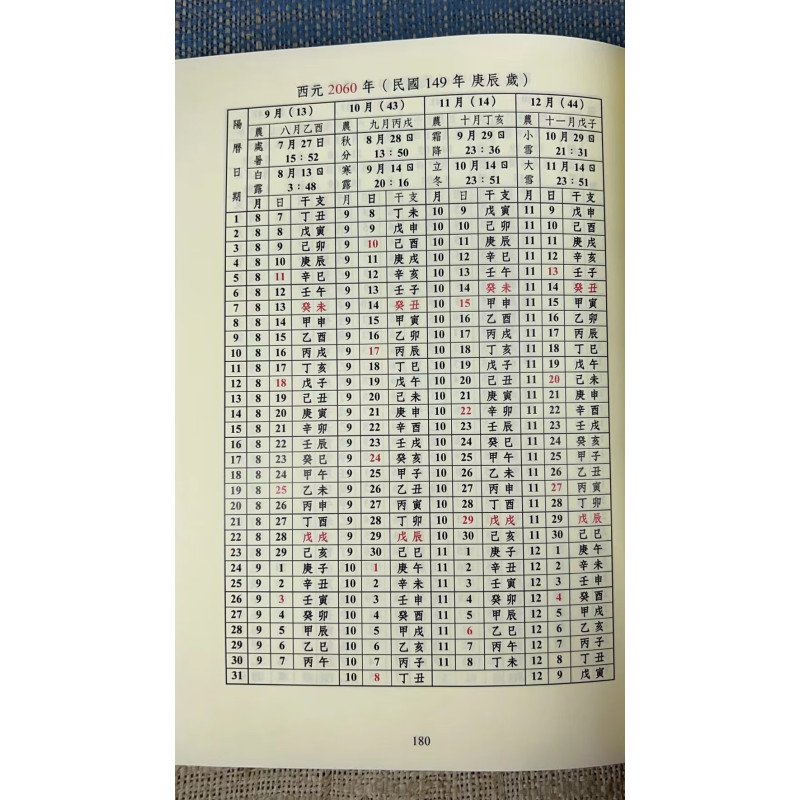 西元 2060 年 ( 民國 149 年 庚辰 歲 )
陽曆日期 9 月 ( 13 ) 10 月 ( 43 ) 11 月 ( 14 ) 12 月 ( 44 )
農 八月乙酉 農 九月丙戌 農 十月丁亥 農 十一月戊子
處暑 7 月 27 日 15：52 秋分 8 月 28 日 13：50 霜降 9 月 29 日 23：36 小雪 10 月 29 日 21：31
白露 8 月 13 日 3：48 寒露 9 月 14 日 20：16 立冬 10 月 14 日 23：51 大雪 11 月 14 日 23：51
月 日 干支 月 日 干支 月 日 干支 月 日 干支
1 8 7 丁丑 9 8 丁未 10 9 戊寅 11 9 戊申
2 8 8 戊寅 9 9 戊申 10 10 己卯 11 10 己酉
3 8 9 己卯 9 10 己酉 10 11 庚辰 11 11 庚戌
4 8 10 庚辰 9 11 庚戌 10 12 辛巳 11 12 辛亥
5 8 11 辛巳 9 12 辛亥 10 13 壬午 11 13 壬子
6 8 12 壬午 9 13 壬子 10 14 癸未 11 14 癸丑
7 8 13 癸未 9 14 癸丑 10 15 甲申 11 15 甲寅
8 8 14 甲申 9 15 甲寅 10 16 乙酉 11 16 乙卯
9 8 15 乙酉 9 16 乙卯 10 17 丙戌 11 17 丙辰
10 8 16 丙戌 9 17 丙辰 10 18 丁亥 11 18 丁巳
11 8 17 丁亥 9 18 丁巳 10 19 戊子 11 19 戊午
12 8 18 戊子 9 19 戊午 10 20 己丑 11 20 己未
13 8 19 己丑 9 20 己未 10 21 庚寅 11 21 庚申
14 8 20 庚寅 9 21 庚申 10 22 辛卯 11 22 辛酉
15 8 21 辛卯 9 22 辛酉 10 23 壬辰 11 23 壬戌
16 8 22 壬辰 9 23 壬戌 10 24 癸巳 11 24 癸亥
17 8 23 癸巳 9 24 癸亥 10 25 甲午 11 25 甲子
18 8 24 甲午 9 25 甲子 10 26 乙未 11 26 乙丑
19 8 25 乙未 9 26 乙丑 10 27 丙申 11 27 丙寅
20 8 26 丙申 9 27 丙寅 10 28 丁酉 11 28 丁卯
21 8 27 丁酉 9 28 丁卯 10 29 戊戌 11 29 戊辰
22 8 28 戊戌 9 29 戊辰 10 30 己亥 11 30 己巳
23 8 29 己亥 9 30 己巳 11 1 庚子 12 1 庚午
24 9 1 庚子 10 1 庚午 11 2 辛丑 12 2 辛未
25 9 2 辛丑 10 2 辛未 11 3 壬寅 12 3 壬申
26 9 3 壬寅 10 3 壬申 11 4 癸卯 12 4 癸酉
27 9 4 癸卯 10 4 癸酉 11 5 甲辰 12 5 甲戌
28 9 5 甲辰 10 5 甲戌 11 6 乙巳 12 6 乙亥
29 9 6 乙巳 10 6 乙亥 11 7 丙午 12 7 丙子
30 9 7 丙午 10 7 丙子 11 8 丁未 12 8 丁丑
31 10 8 丁丑 12 9 戊寅
180